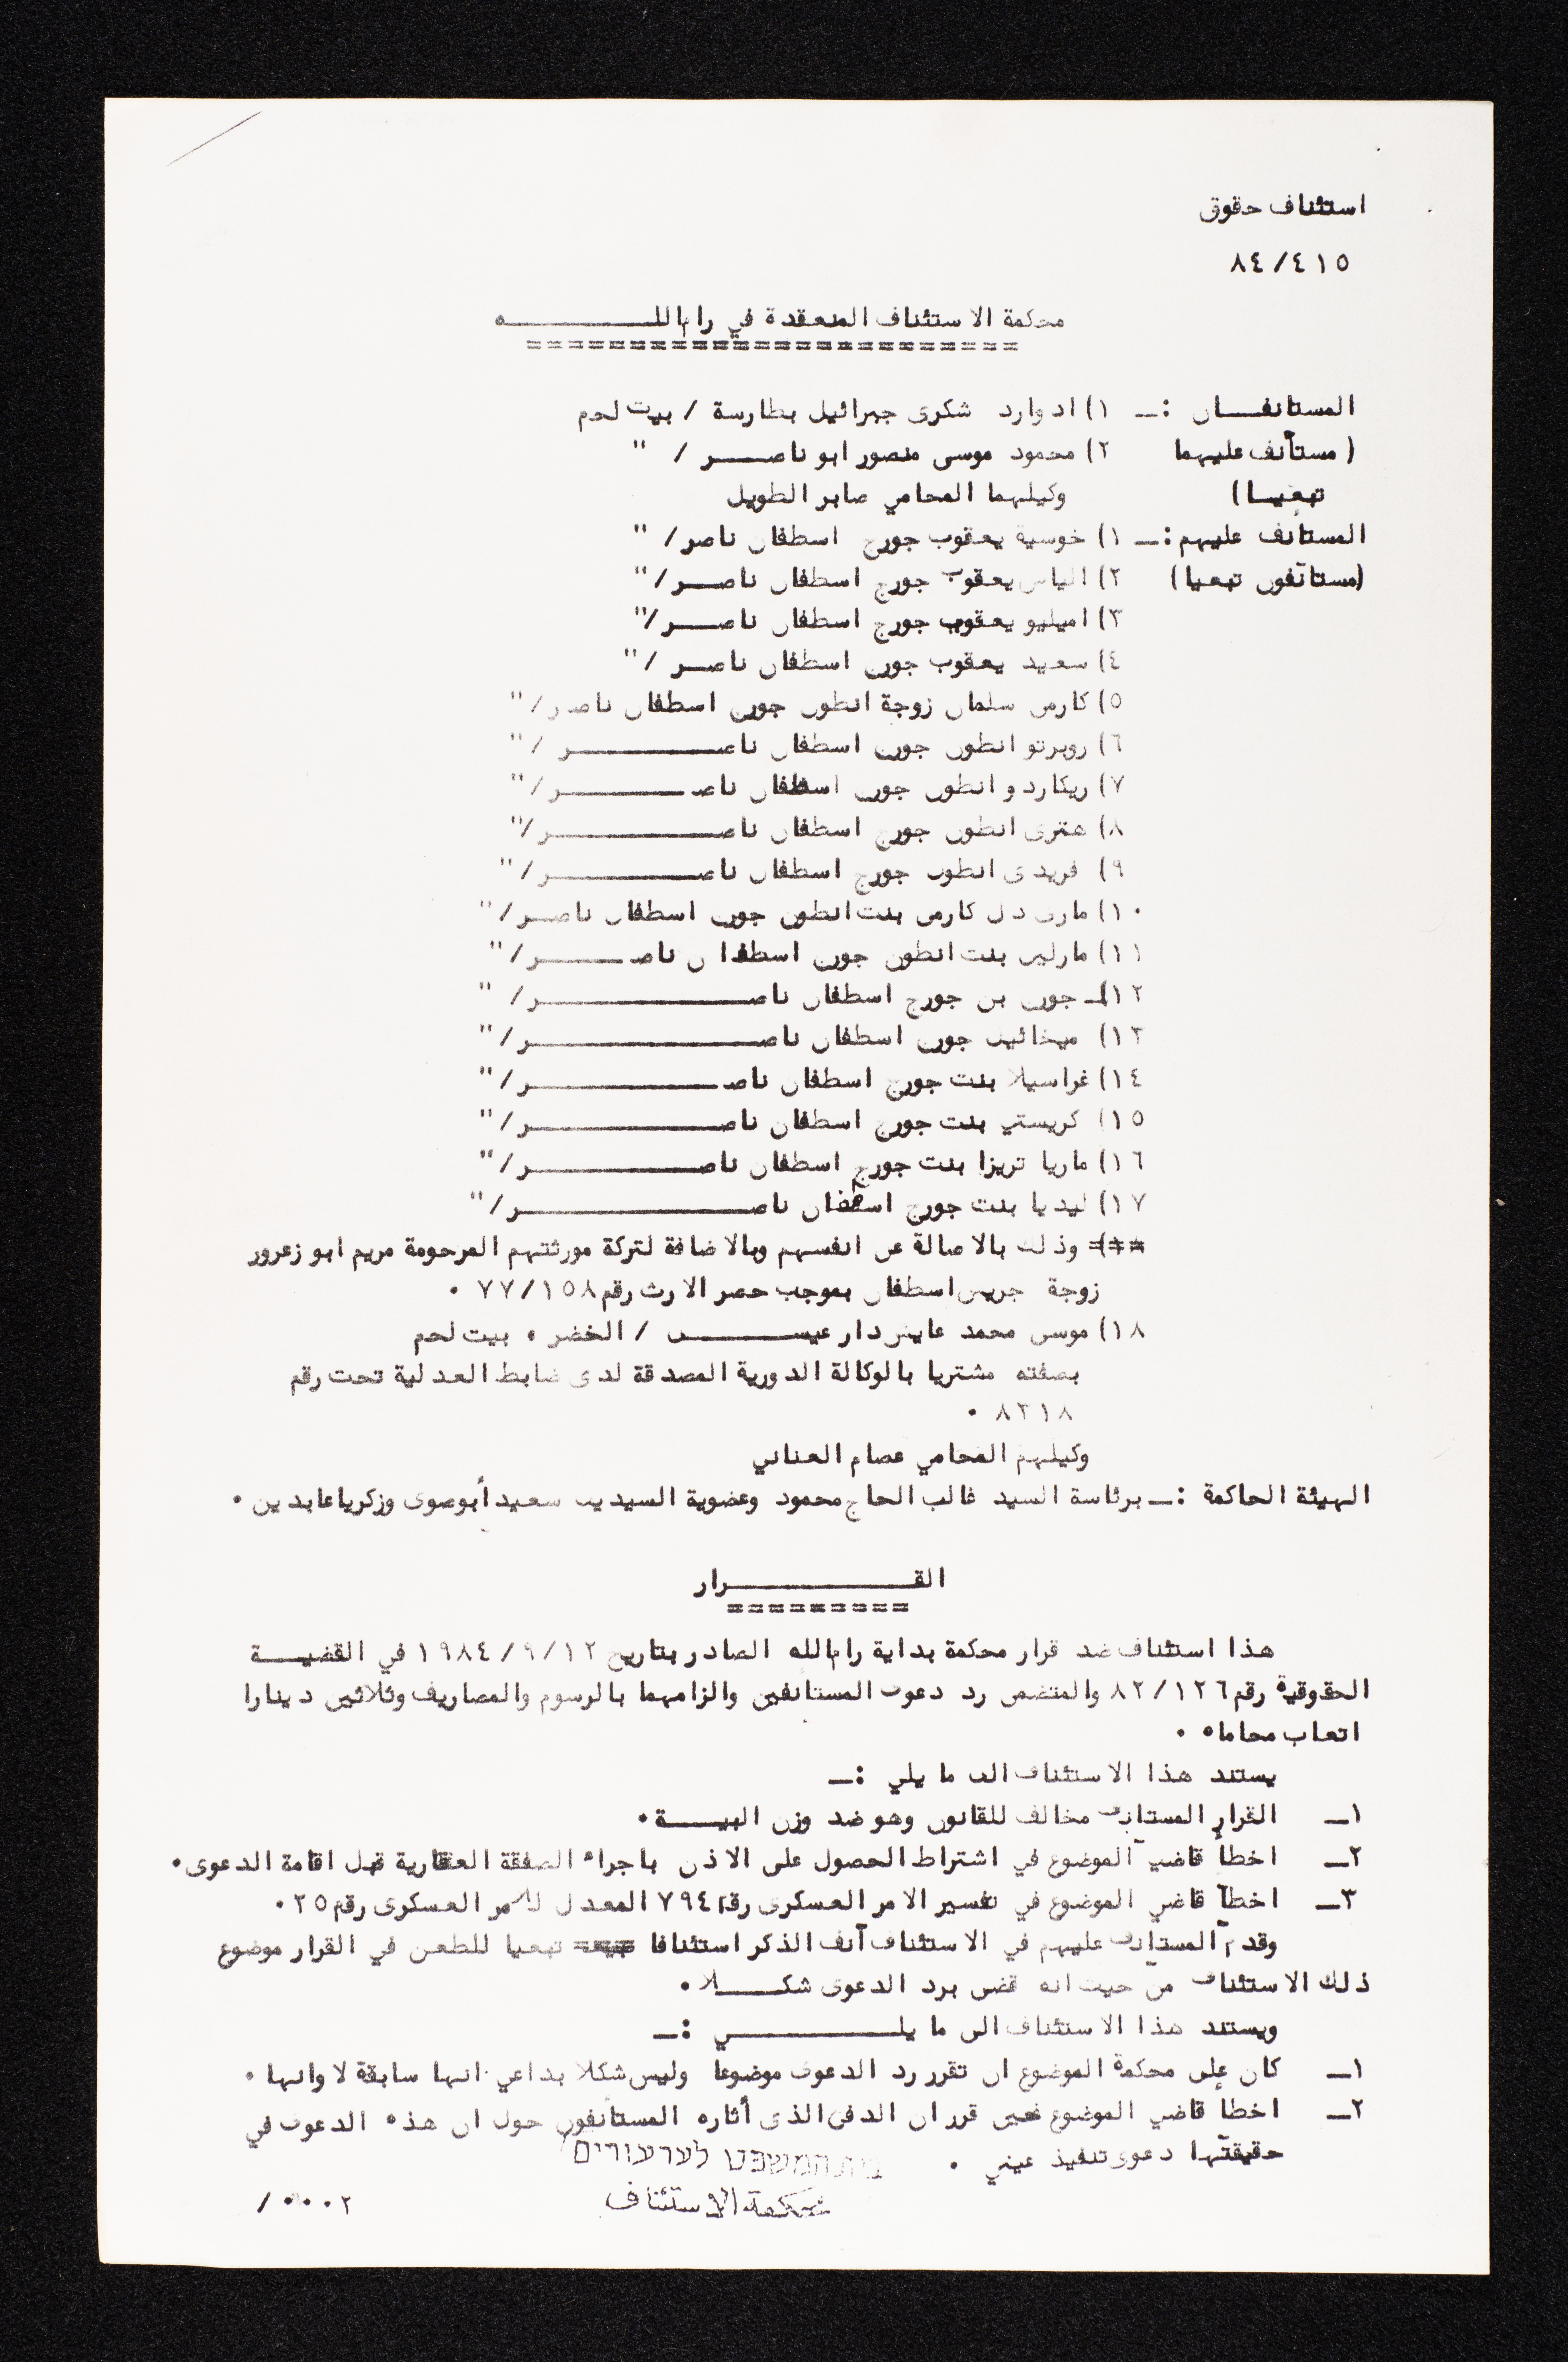 استئناف حقوق
٨٤/٤١٥
محكمة الاستئناف المنعقدة في رام اللـــــــه
المستانفــــان :ــ ١) ادوارد شكرى جبرائيل بطارسة / بيت لحم
(مستأنف عليهما ٢) محمود موسى منصور ابو ناصــــر / "
تبعيــا) وكيلهما المحامي صابر الطويل
المستأنف عليهم :ــ ١) خوسية يعقوب جورج اسطفان ناصر/ "
(مستأنفون تبعيا) ٢) الياس يعقوب جورج اسطفان ناصــر/ "
٣) اميليو يعقوب جورج اسطفان ناصــر/ "
٤) سعيد يعقوب جورج اسطفان ناصــر / "
٥) كارمن سلمان زوجة انطون جورج اسطفان ناصر/ "
٦) روبرتو انطون جورج اسطفان ناصـــــــــر / "
٧) ريكاردو انطون جورج اسطفان ناصـــــــــر/ "
٨) هنرى انطون جورج اسطفان ناصـــــــــر/ "
٩) فريدى انطون جورج اسطفان ناصـــــــــر/ "
١٠) مارى دل كارمن بنت انطون جورج اسطفان ناصــر/ "
١١) مارلين بنت انطون جورج اسطفان ناصــــــر/ "
١٢) جورج بن جورج اسطفان ناصـــــــــــر/ "
١٣) ميخائيل جورج اسطفان ناصـــــــــــر/ "
١٤) غراسيلا بنت جورج اسطفان ناصـــــــــــر/ "
١٥) كريستي بنت جورج اسطفان ناصـــــــــــر/ "
١٦) ماريا تريزا بنت جورج اسطفان ناصـــــــــــر/ "
١٧) ليديا بنت جورج اسطفان ناصـــــــــــر/ "
وذلك بالاصالة عن انفسهم وبالاضافة لتركة مورثتهم المرحومة مريم ابو زعرور
زوجة جريس اسطفان بموجب حصر الارث رقم ٧٧/١٥٨ ٠
١٨) موسى محمد عايش دار عيســــــى / الخضر ٠ بيت لحم
بصفته مشتريا بالوكالة الدورية المصدقة لدى ضابط العدلية تحت رقم
٨٢١٨ ٠
وكيلهم المحامي عصام العناني
الهيئة الحاكمة :ــ برئاسة السيد غالب الحاج محمود وعضوية السيدين سعيد أبوصوى وزكريا عابدين ٠
القـــــــــــرار
هذا استئناف ضد قرار محكمة بداية رام الله الصادر بتاريخ ١٩٨٤/٩/١٢ في القضيــــة
الحقوقية رقم ٨٢/١٢٦ والمتضمن رد دعوى المستأنفين والزامهما بالرسوم والمصاريف وثلاثين دينارا
اتعاب محاماه ٠
يستند هذا الاستئناف الى ما يلي :ــ
١ــ القرار المستأنف مخالف للقانون وهو ضد وزن البينـــة ٠
٢ــ اخطأ قاضي الموضوع في اشتراط الحصول على الاذن باجراء الصفقة العقارية قبل اقامة الدعوى ٠
٣ــ اخطأ قاضي الموضوع في تفسير الامر العسكرى رقم ٧٩٤ المعدل للامر العسكرى رقم ٢٥ ٠
وقدم المستأنف عليهم في الاستئناف آنف الذكر استئنافا تبعيا للطعن في القرار موضوع
ذلك الاستئناف من حيث انه قضى برد الدعوى شكــــلا ٠
ويستند هذا الاستئناف الى ما يلـــــــــي :ــ
١ــ كان على محكمة الموضوع ان تقرر رد الدعوى موضوعا وليس شكلا بداعي انها سابقة لاوانها ٠
٢ــ اخطأ قاضي الموضوع حين قرر ان الدفع الذى أثاره المستأنفون حول ان هذه الدعوى في
حقيقتها دعوى تنفيذ عيني ٠
בית המשפט לערעורים
محكمة الاستئناف
٢٠٠٠/